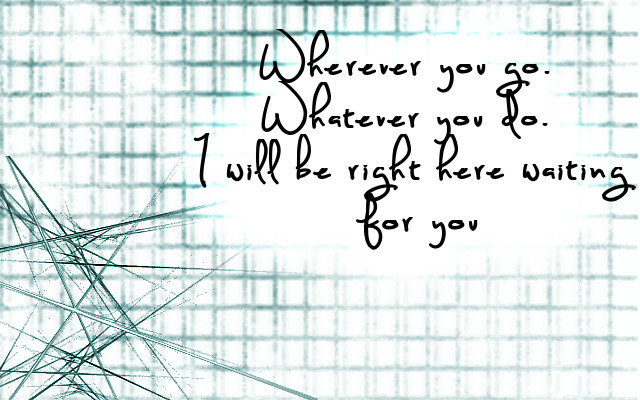 Wherever you go.
Whatever you do.
I will be right here waiting
for you